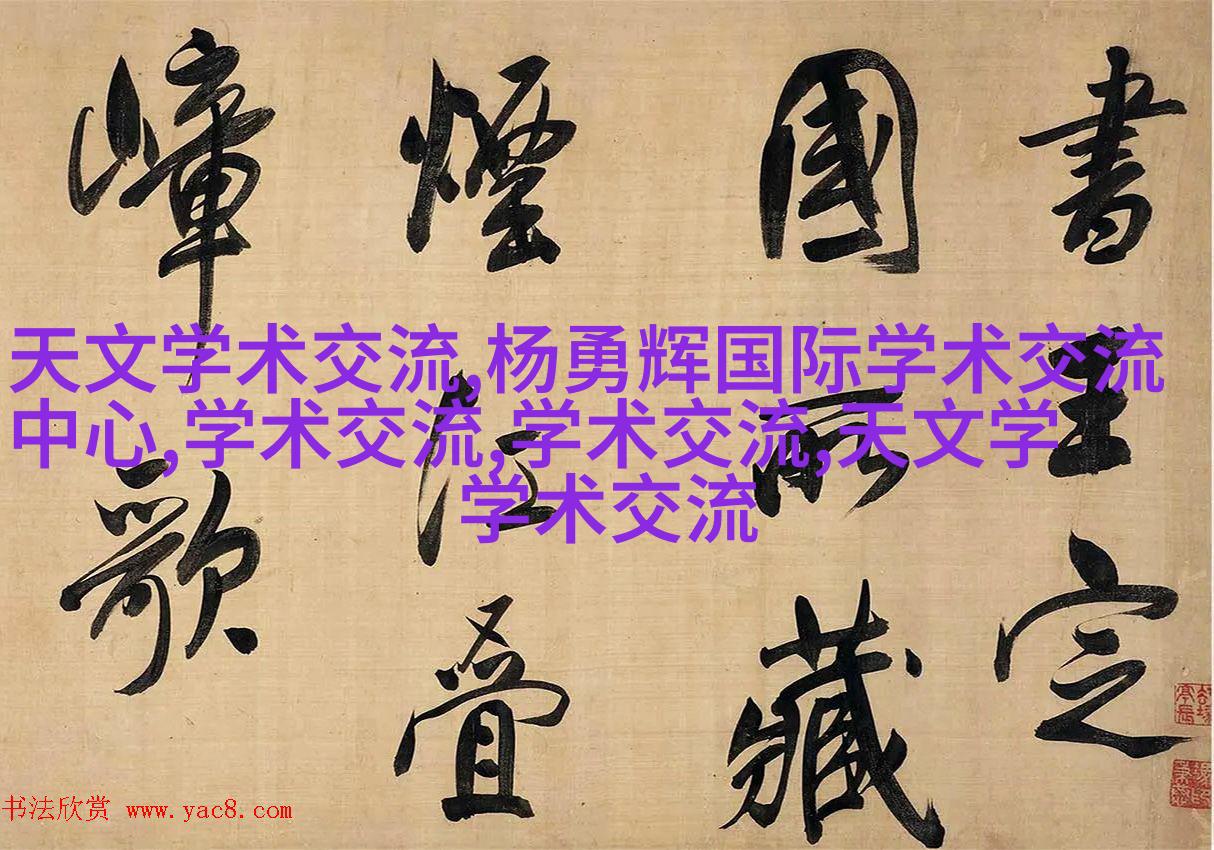 書王定
國所藏
煙江疊
嶂歌
天文学术交流,杨勇辉国际学术交流
中心,学术交流,学术交流,天文学
学术交流
书法欣赏 www.yac8.com